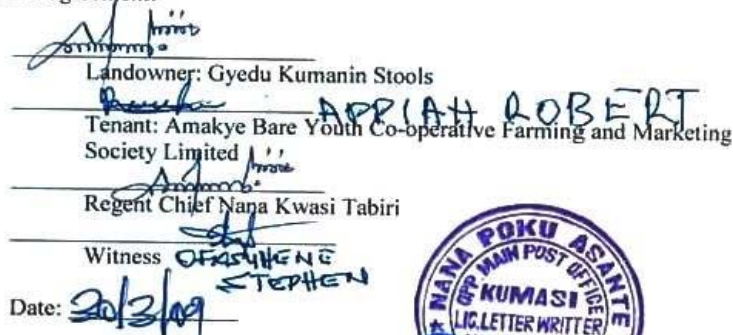 Landowner: Gyedu Kumanin Stools
APPIAH ROBERT
Tenant: Amakye Bare Youth Co-operative Farming and Marketing
Society Limited
Regent Chief Nana Kwasi Tabiri
Witness OFASUHENE
STEPHEN
Date: 30/3/09
NANA POKU ASANTE
OPP MAIN POST OFFICE
KUMASI
LIC. LETTER WRITTER